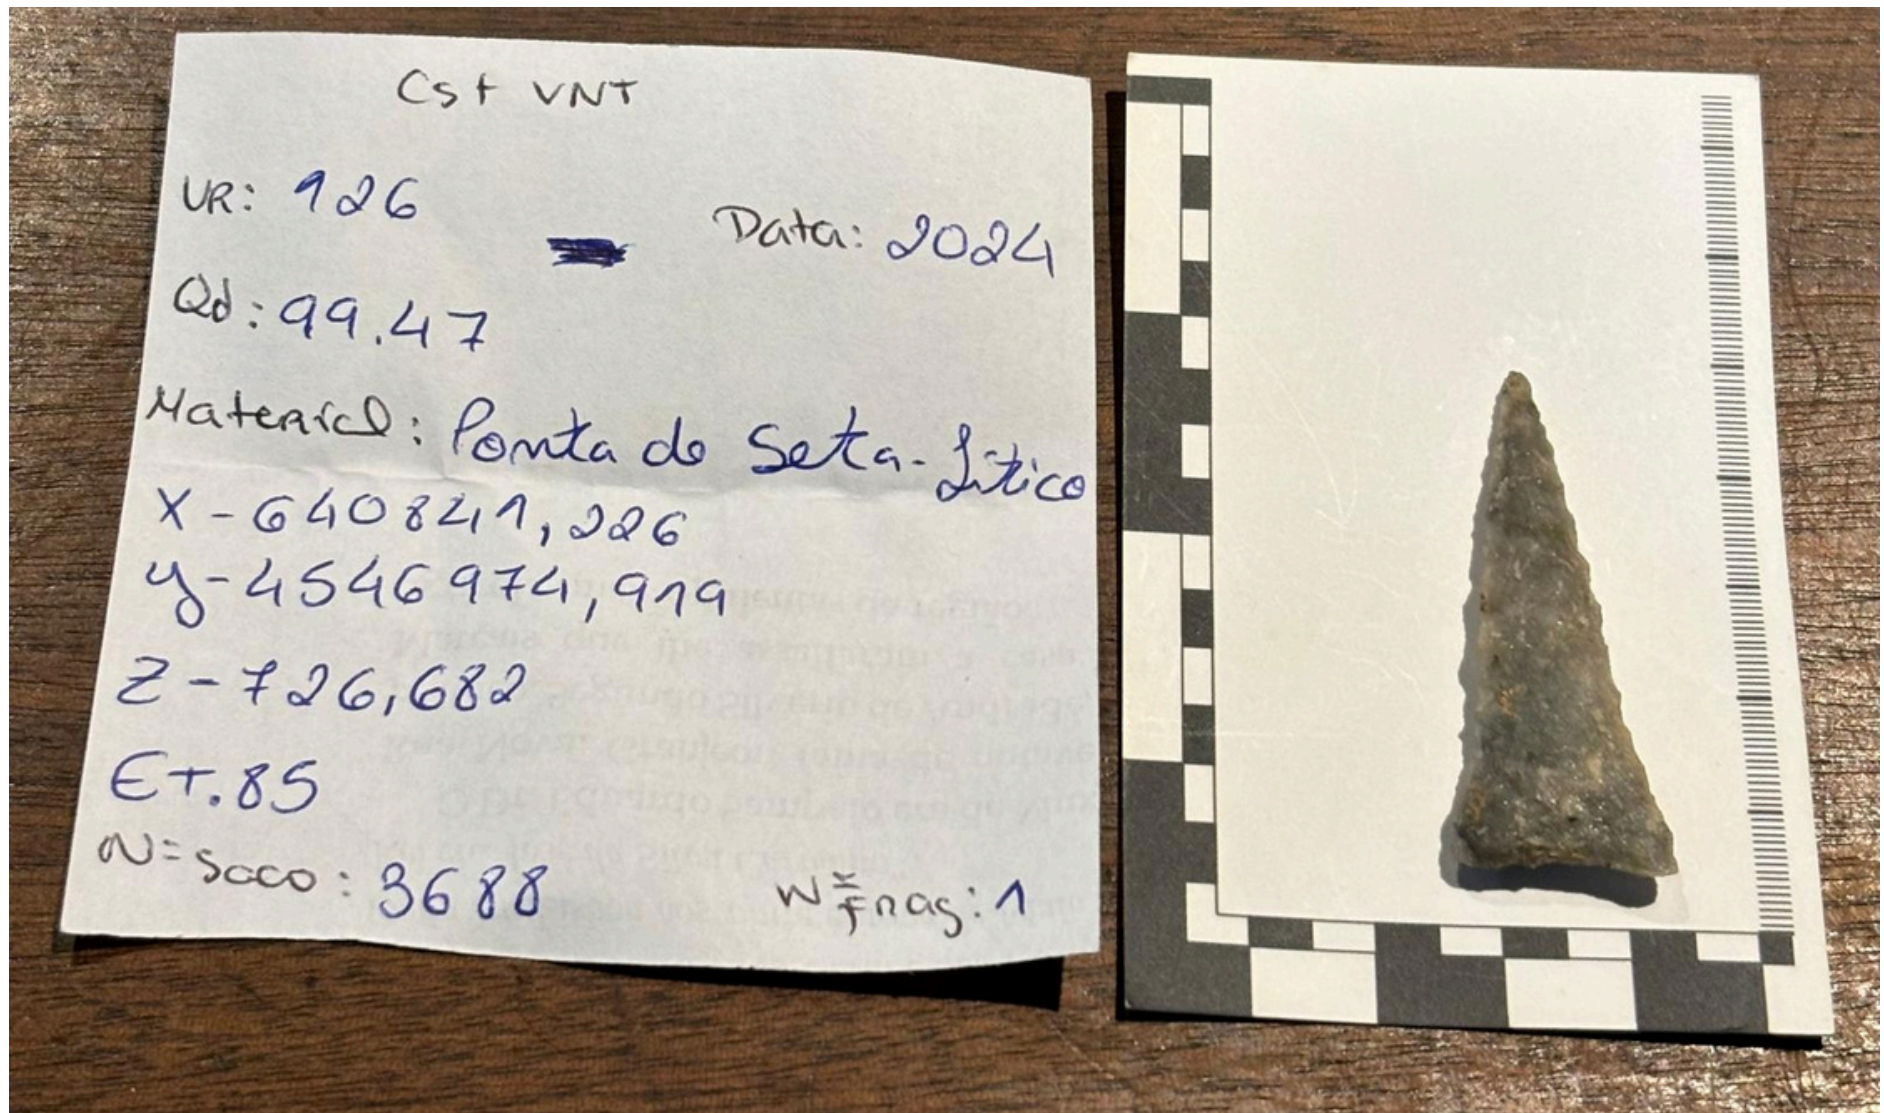 Cst VNT
UR: 126
Data: 2024
Qd: 99.47
Material: Ponta de Seta - Lítico
X - 640841,226
y - 4546974,919
Z - 726,682
ET. 85
Nº Saco: 3688
Nº Frag: 1